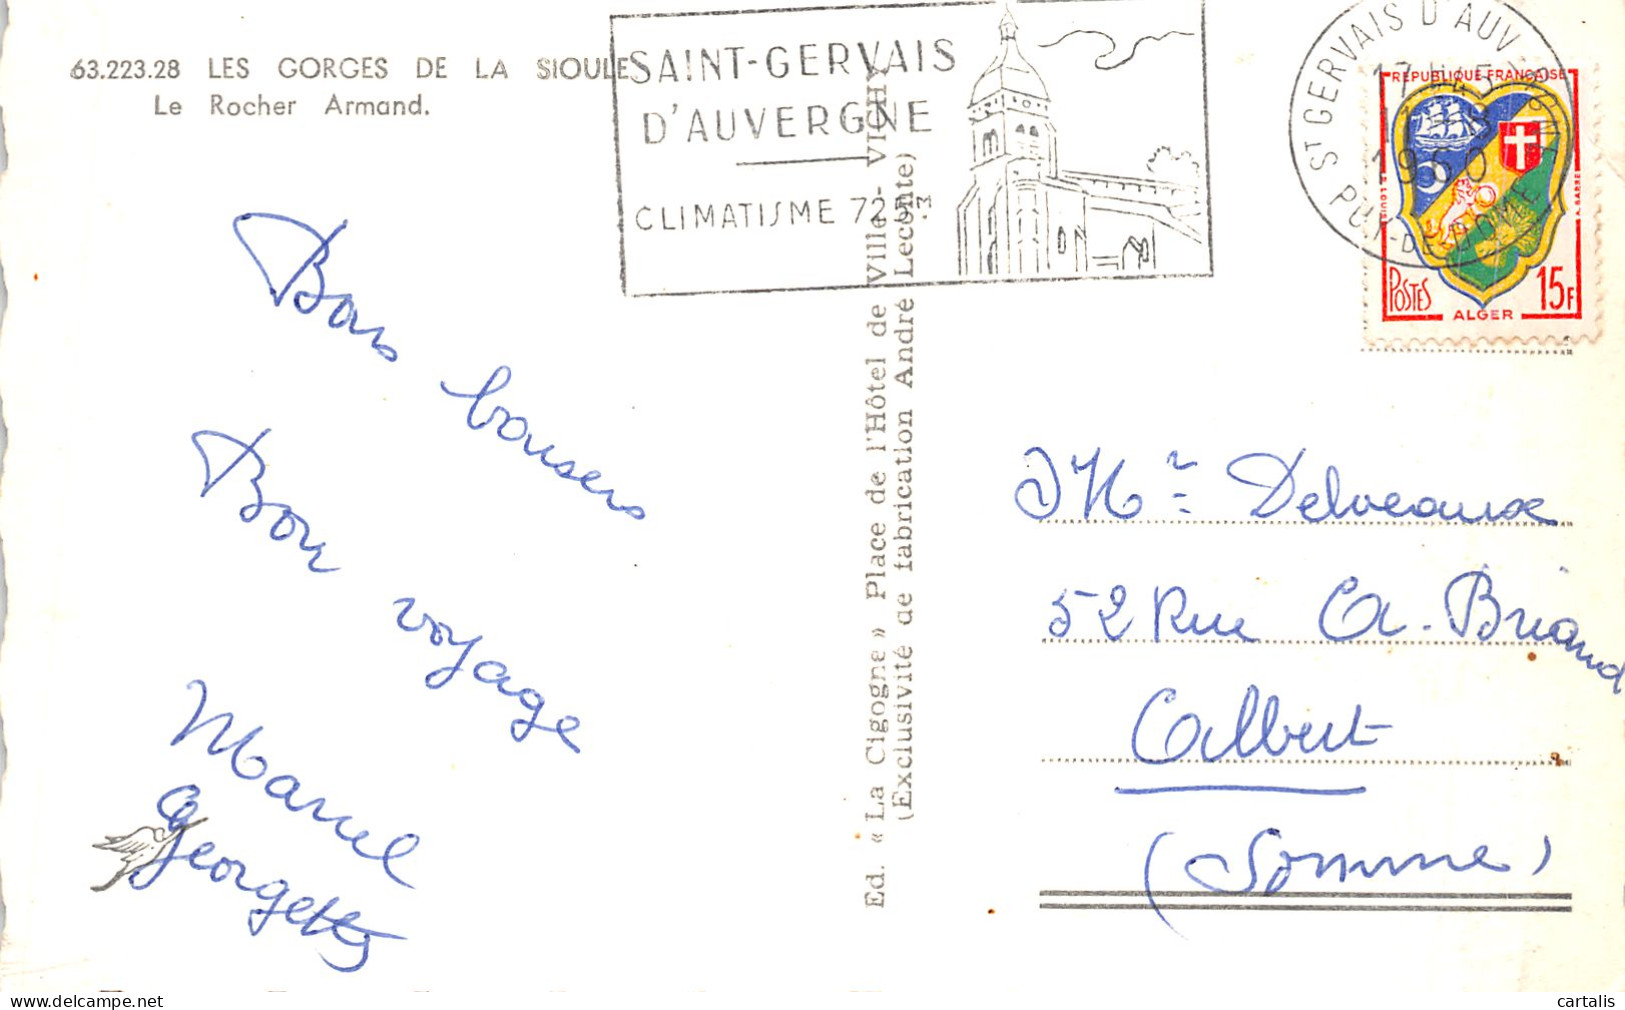 63.223.28 LES GORGES DE LA SIOULE
Le Rocher Armand.
SAINT-GERVAIS
D'AUVERGNE
CLIMATISME 725 M
ST GERVAIS D'AUVERGNE
17H45
1960
PUY-DE-DOME
REPUBLIQUE FRANÇAISE
POSTES
ALGER
15F
Bons baisers
Bon voyage
Marcel
Georgette
Ed. « La Cigogne » Place de l'Hôtel de Ville - VICHY
(Exclusivité de fabrication André Leconte)
Mr Delveaux
52 Rue A. Briand
Albert
(Somme)
cartalis